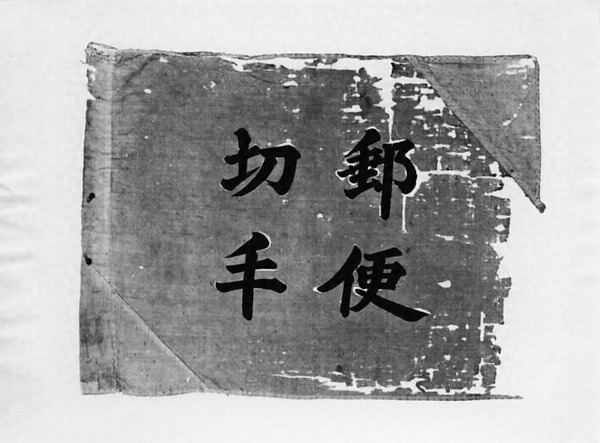 郵便
切手